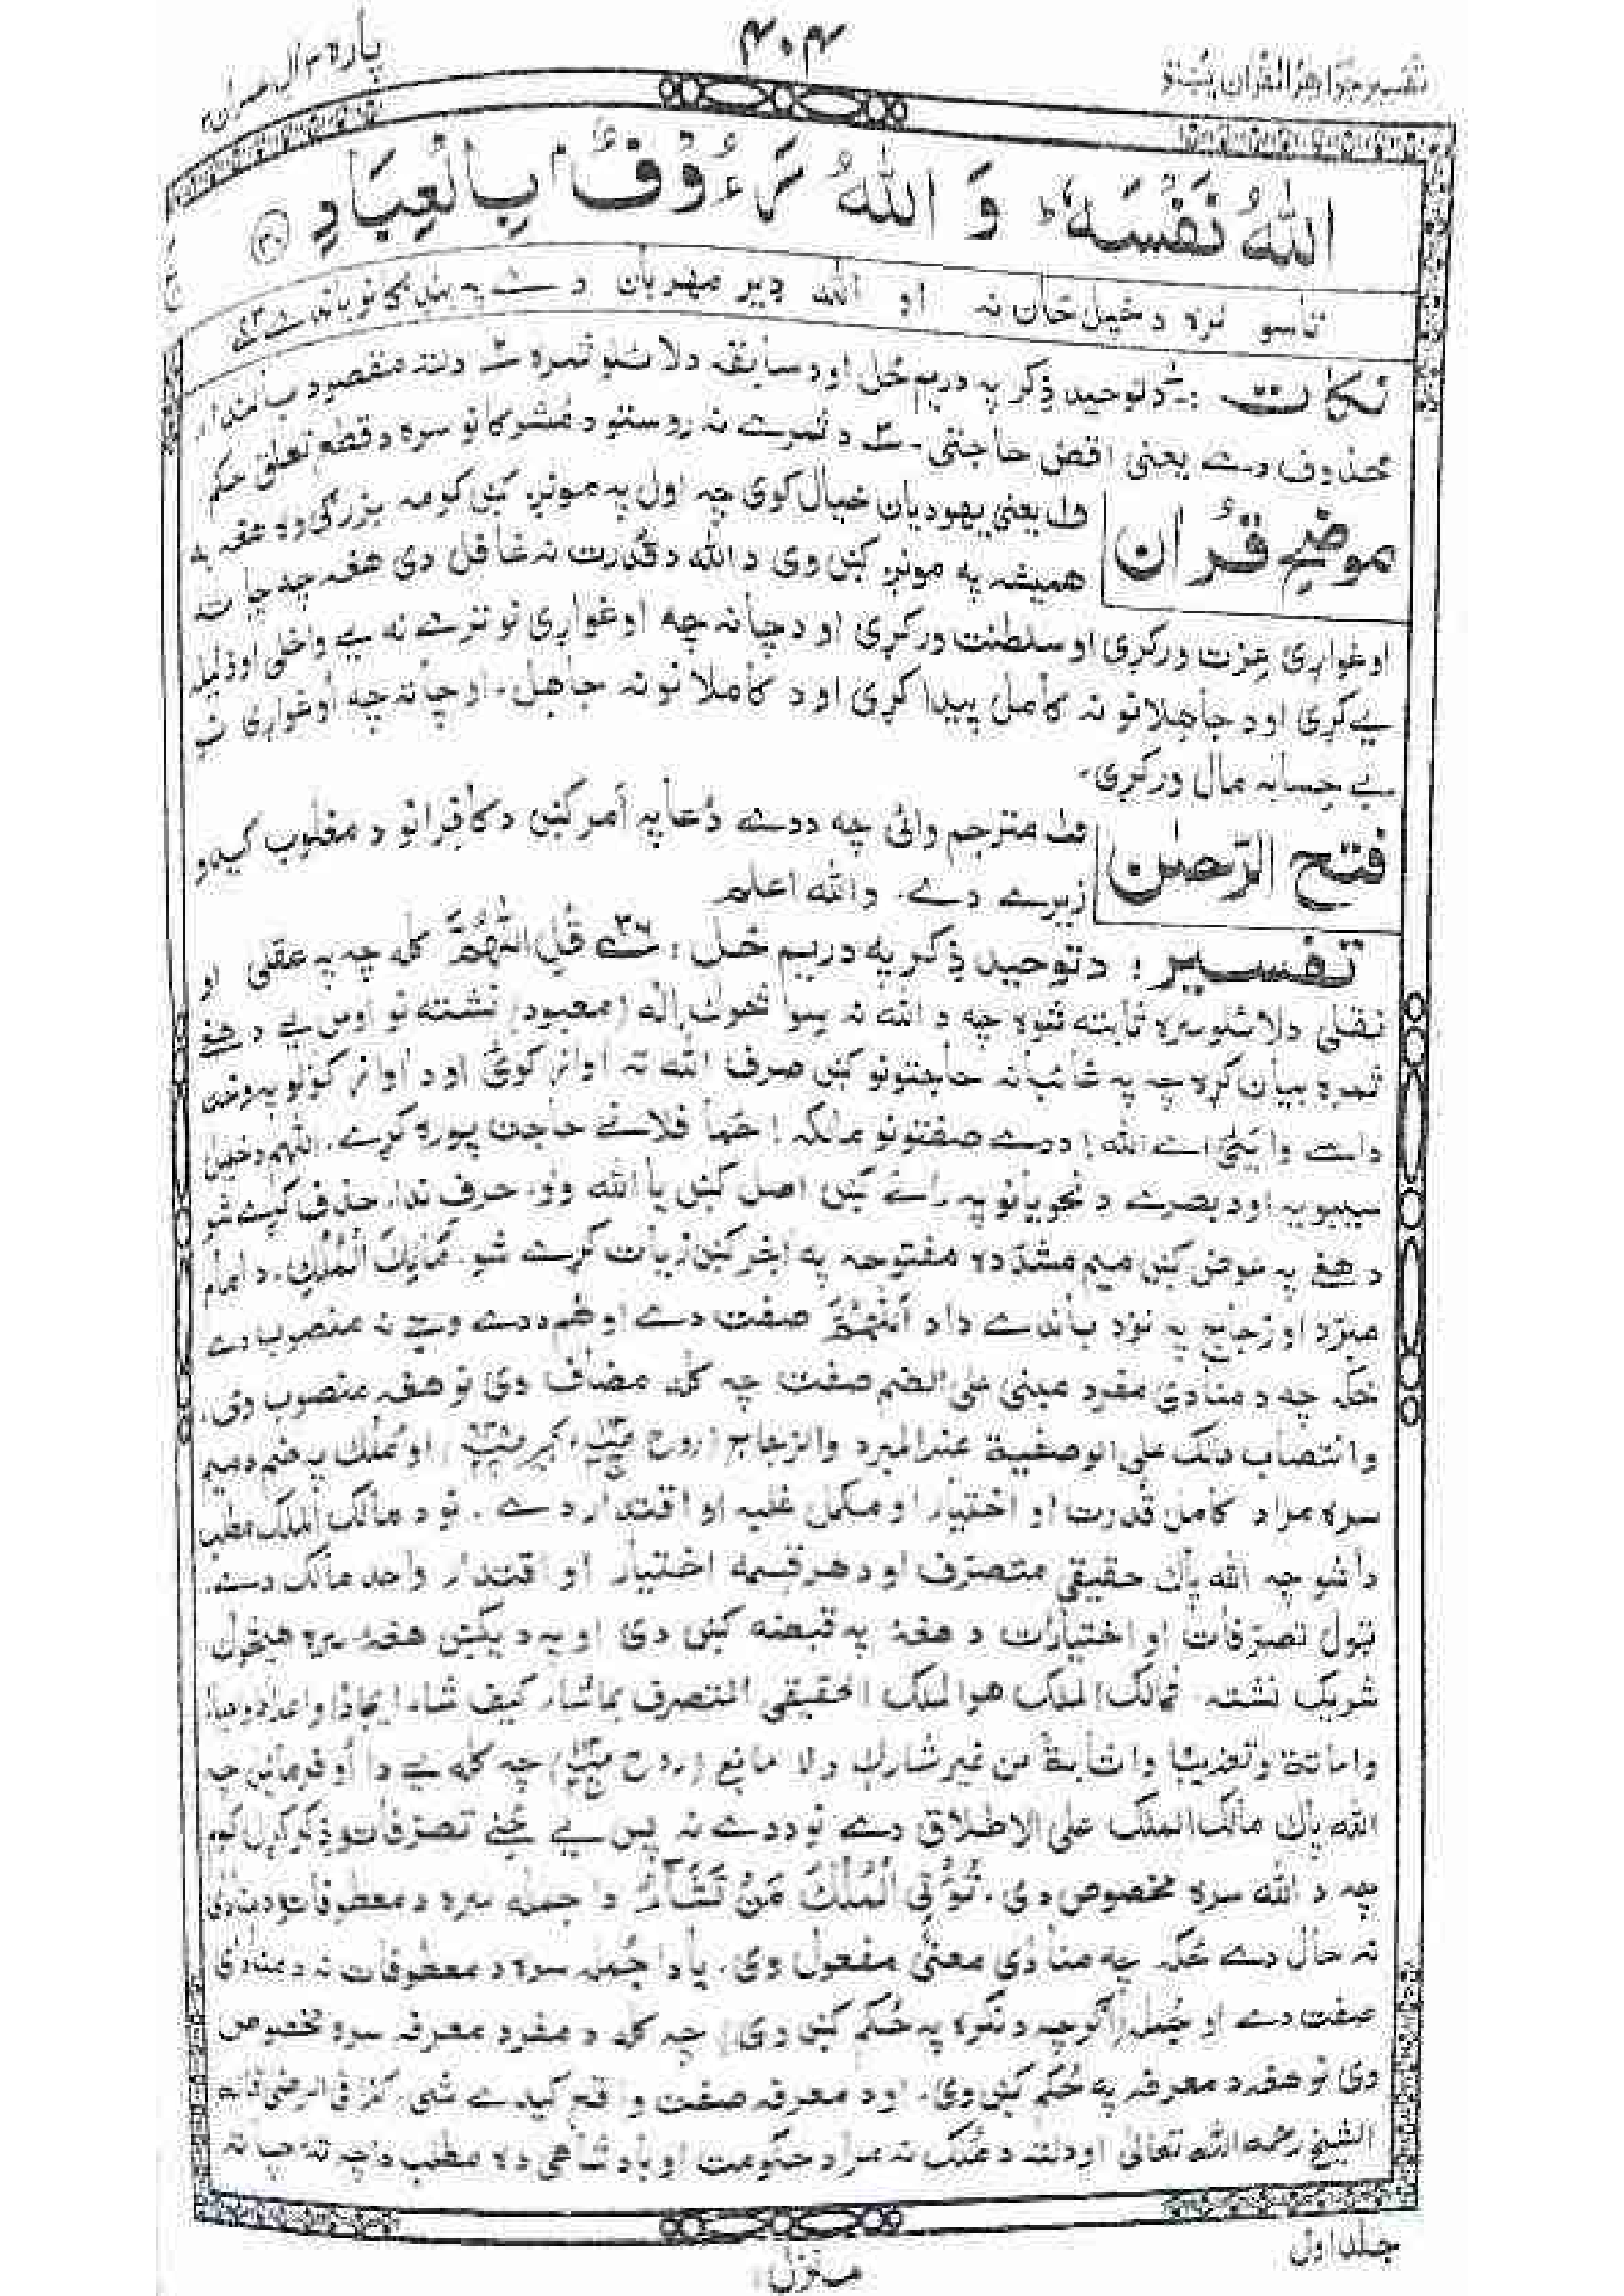 تفسیر جواهر القرآن پښتو
۴۰۴
پاره ۳ ال عمران
اللهُ نَفْسَهٗ ؕ وَ اللهُ رَءُوْفٌۢ بِالْعِبَادِ ۳۰
تاسو نره دخپل ځان نه او الله ډیر مهربان دے په بندګانو باندے
نکات :- دتوحید ذکر په دریم ځل او د سابقه دلائلو ثمره دلته مقصود
محذوف دے یعنی اقض حاجتی د ثمرے نه روستو د مشرکانو سره د قطع تعلق حکم
موضح قرآن
ف یعنی یهودیان خیال کوی چه اول په مونږ کښ کومه بزرګی وه هغه به
همیشه په مونږ کښ وی د الله د قدرت نه غافل دی هغه چه چا ته
اوغواړی عزت ورکړی او سلطنت ورکړی او د چا نه چه اوغواړی نو ترے نه یے واخلی او ذلیله
یے کړی او د جاهلانو نه کامل پیدا کړی او د کاملانو نه جاهل. او چا ته چه اوغواړی نو
بے حسابه مال ورکړی.
فتح الرحمٰن
ف مترجم وائی چه ددے دعا په امر کښ د کافرانو د مغلوب کیدو
زیرے دے. والله اعلم
تفسیر : دتوحید ذکر په دریم ځل : قُلِ اللّٰهُمَّ کله چه په عقلی اور
نقلی دلائلو سره ثابته شوه چه د الله نه سوا څوک اله (معبود) نشته نو اوس یے د هغے
ثمره بیان کړه چه په غائبانه حاجتونو کښ صرف الله ته اواز کوئ او د اواز کولو په وخت
داسے وایئ اے الله! ددے صفتونو مالکه! ځما فلانے حاجت پوره کړے. اللهم دخلیل
سیبویه او د بصرے د نحویانو په رائے کښ اصل کښ یا الله وو. حرف ندا. حذف کړے شو
د هغے په عوض کښ میم مشدده مفتوحه په اخر کښ زیات کړے شو. مٰلِكَ الْمُلْكِ. د امام
مبرّد او زجاج په نزد باندے دا د اللّٰهُمَّ صفت دے او هم ددے وجے نه منصوب دے
ځکه چه د منادی مفرد مبنی علی الضم صفت چه کله مضاف وی نو هغه منصوب وی.
وانتصاب مالک علی الوصفیة عند المبرد والزجاج (روح او مُلک په ضم د میم
سره مراد کامل قدرت او اختیار او مکمل غلبه او اقتدار دے. نو د مالک الملک مطلب
دا شو چه الله پاک حقیقی متصرف او د هر قسمه اختیار او اقتدار واحد مالک دے.
ټول تصرفات او اختیارات د هغهٔ په قبضه کښ دی او په دیکښ هغه سره هیڅوک
شریک نشته. فمالک الملک هو الملک الحقیقی المتصرف بماشاء کیف شاء ایجادا واعداما
واماتة وتعذیبا واثابة من غیر مشارک ولا مانع (روح چه کله یے دا اوفرمائیل چه
الله پاک مالک الملک علی الاطلاق دے نو ددے نه پس یے ځنے تصرفات ذکر کړل کوم
چه د الله سره مخصوص دی. تُؤْتِي الْمُلْكَ مَنْ تَشَآءُ دا جمله سره د معطوفاتو د منادی
نه حال دے ځکه چه منادی معنیً مفعول وی. یا دا جمله سره د معطوفات نه د منادی
صفت دے او جمل (اګر چه د نکره په حکم کښ دی) چه کله د مفرد معرفه سره مخصوص
وی نو هغه د معرفه په حکم کښ وی. او د معرفه صفت واقع کیدے شی. کذا فی الرضی قاله
الشیخ رحمه الله تعالی او دلته د مُلک نه مراد حکومت او بادشاهی ده مطلب دا چه ته چا ته
جلد اول
منزل